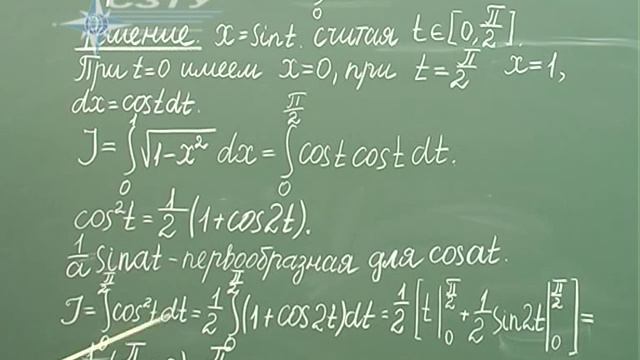 CSTU
0
Решение x=sint. считая t∈[0,π/2].
При t=0 имеем x=0, при t=π/2 x=1,
dx=costdt.
J=∫₀¹√(1-x²) dx=∫₀^(π/2) cost cost dt.
cos²t=1/2(1+cos2t).
1/a sinat-первообразная для cosat.
J=∫₀^(π/2) cos²tdt=1/2∫₀^(π/2)(1+cos2t)dt=1/2[t|₀^(π/2)+1/2 sin2t|₀^(π/2)]=